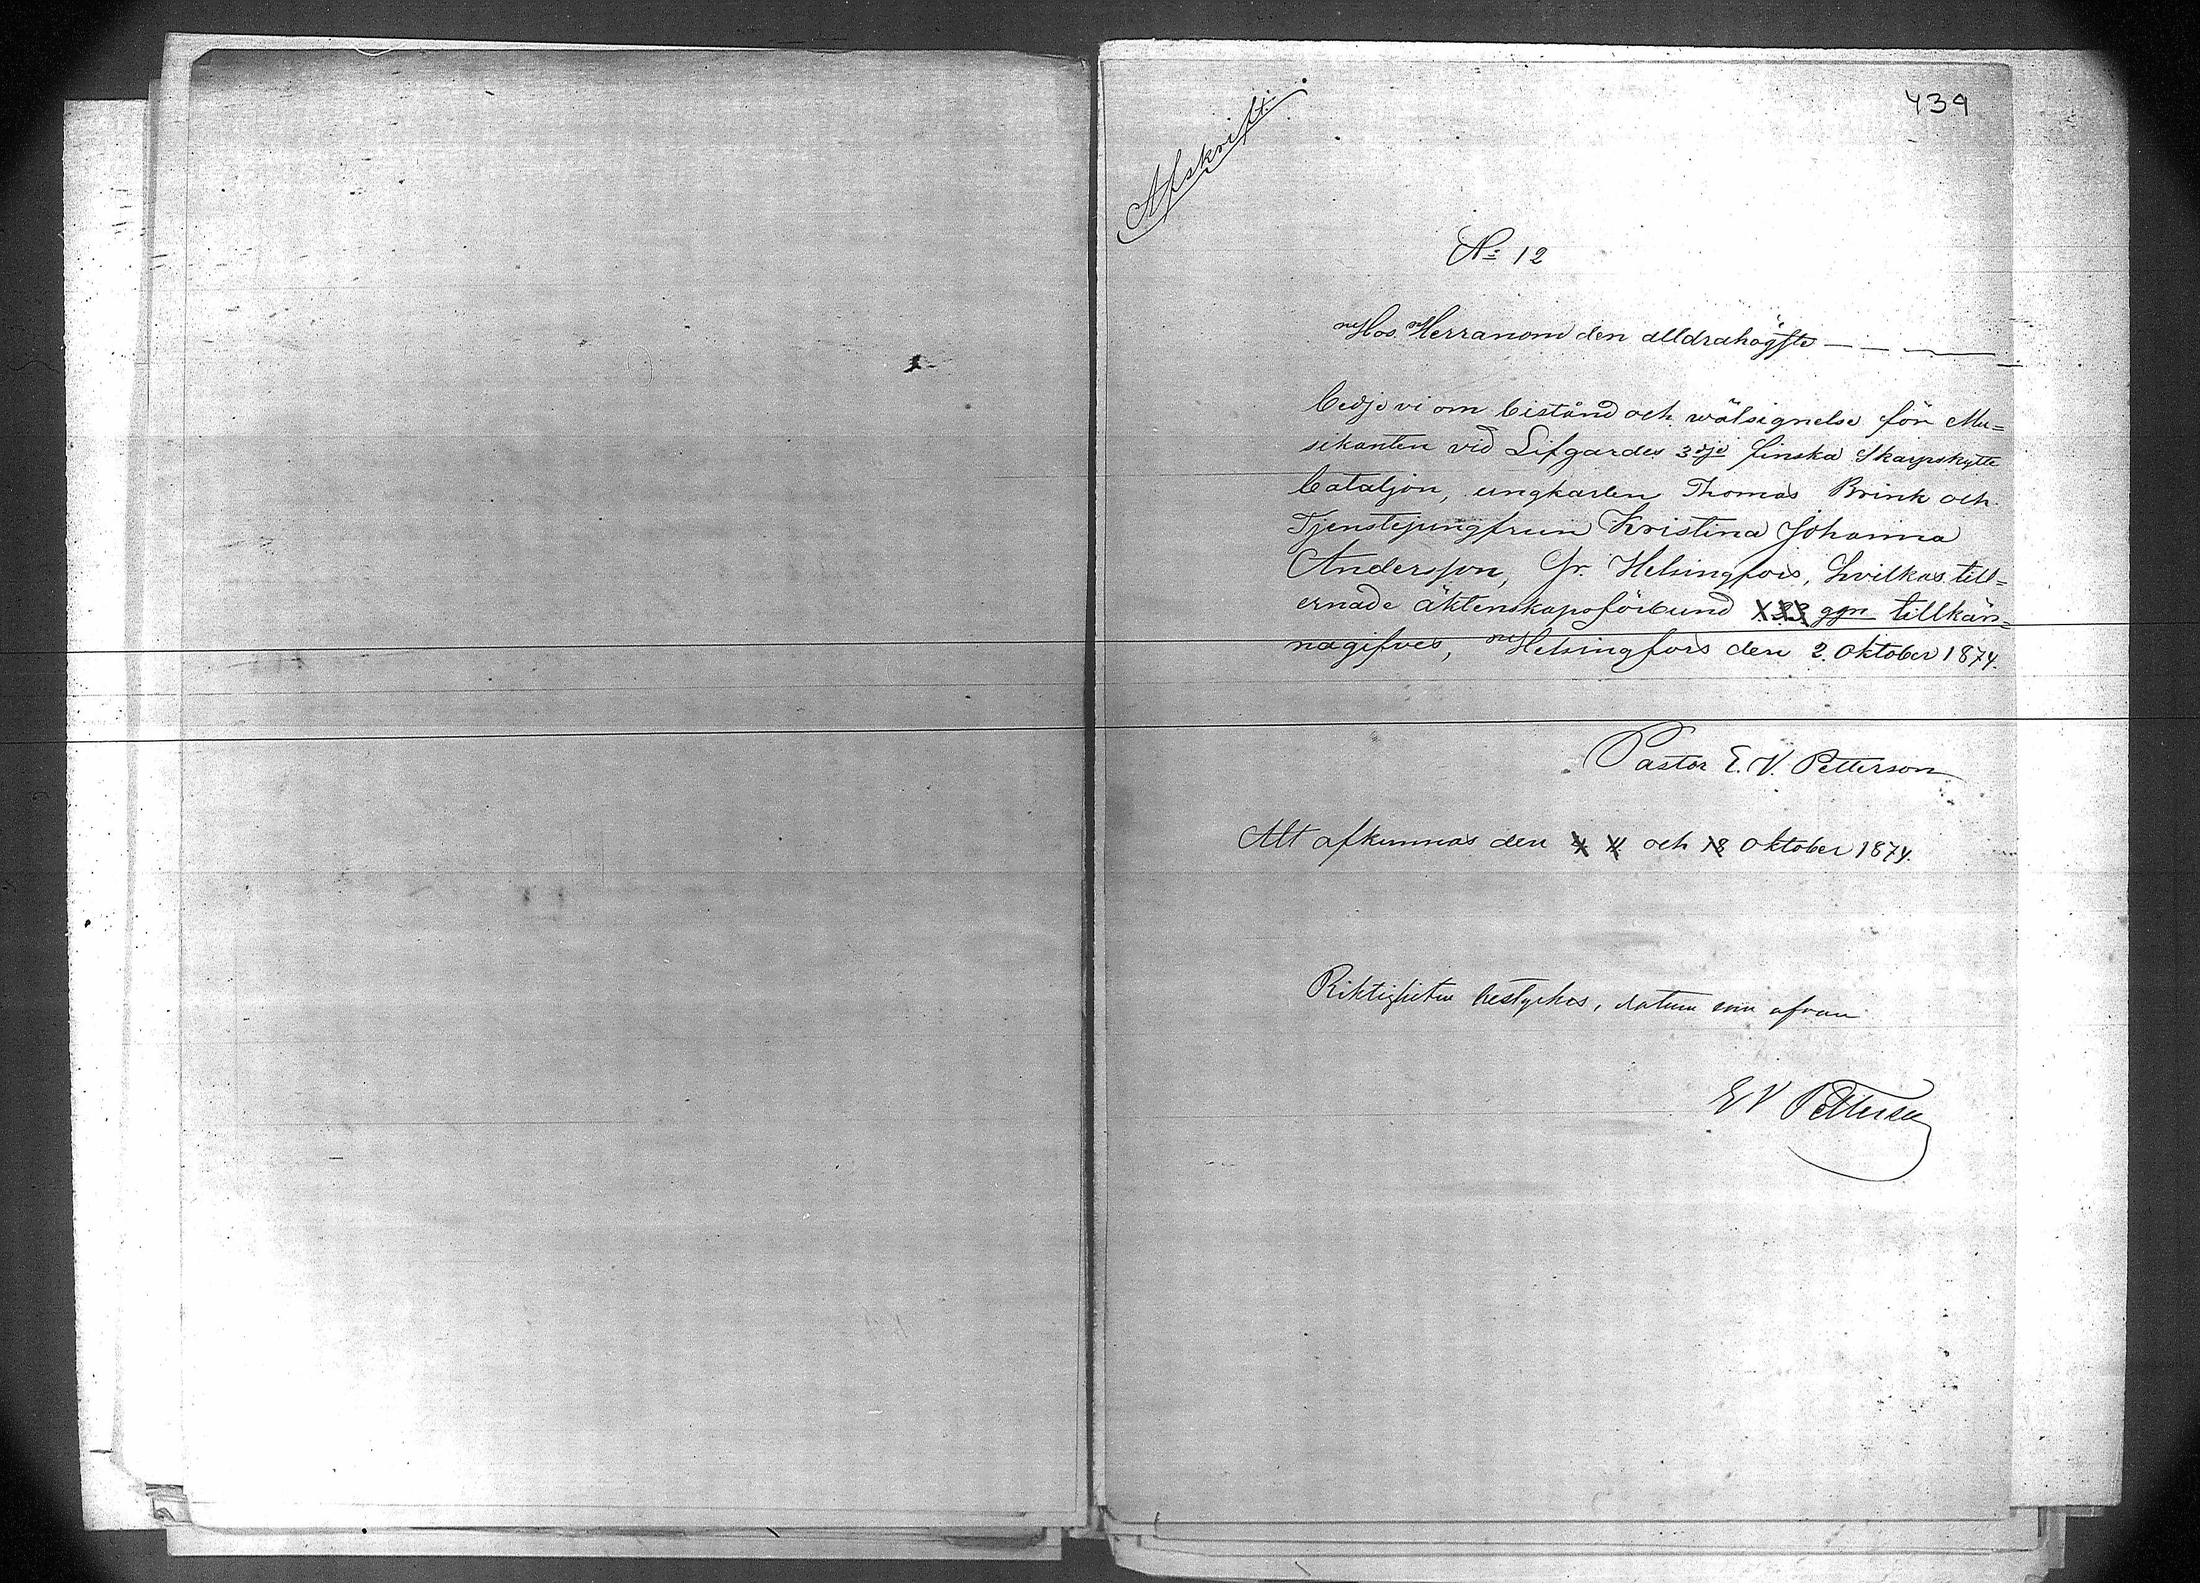 439
Afskrift.
No 12
Hos Herranom den alldrahögste — — —
bedje vi om bistånd och wälsignelse för Mu=
sikanten vid Lifgardes 3dje finska Skarpskytte
bataljon, ungkarlen Thomas Brink och
Tjenstejungfrun Kristina Johanna
Andersson, fr. Helsingfors, hvilkas till=
ernade äktenskapsförbund 1.2.3. ggn tillkän=
nagifves, Helsingfors den 2. Oktober 1874.
Pastor E. V. Petterson
Att afkunnas den 4 11 och 18 Oktober 1874.
Riktigheten bestyrkes, datum som ofvan
E V Petterson